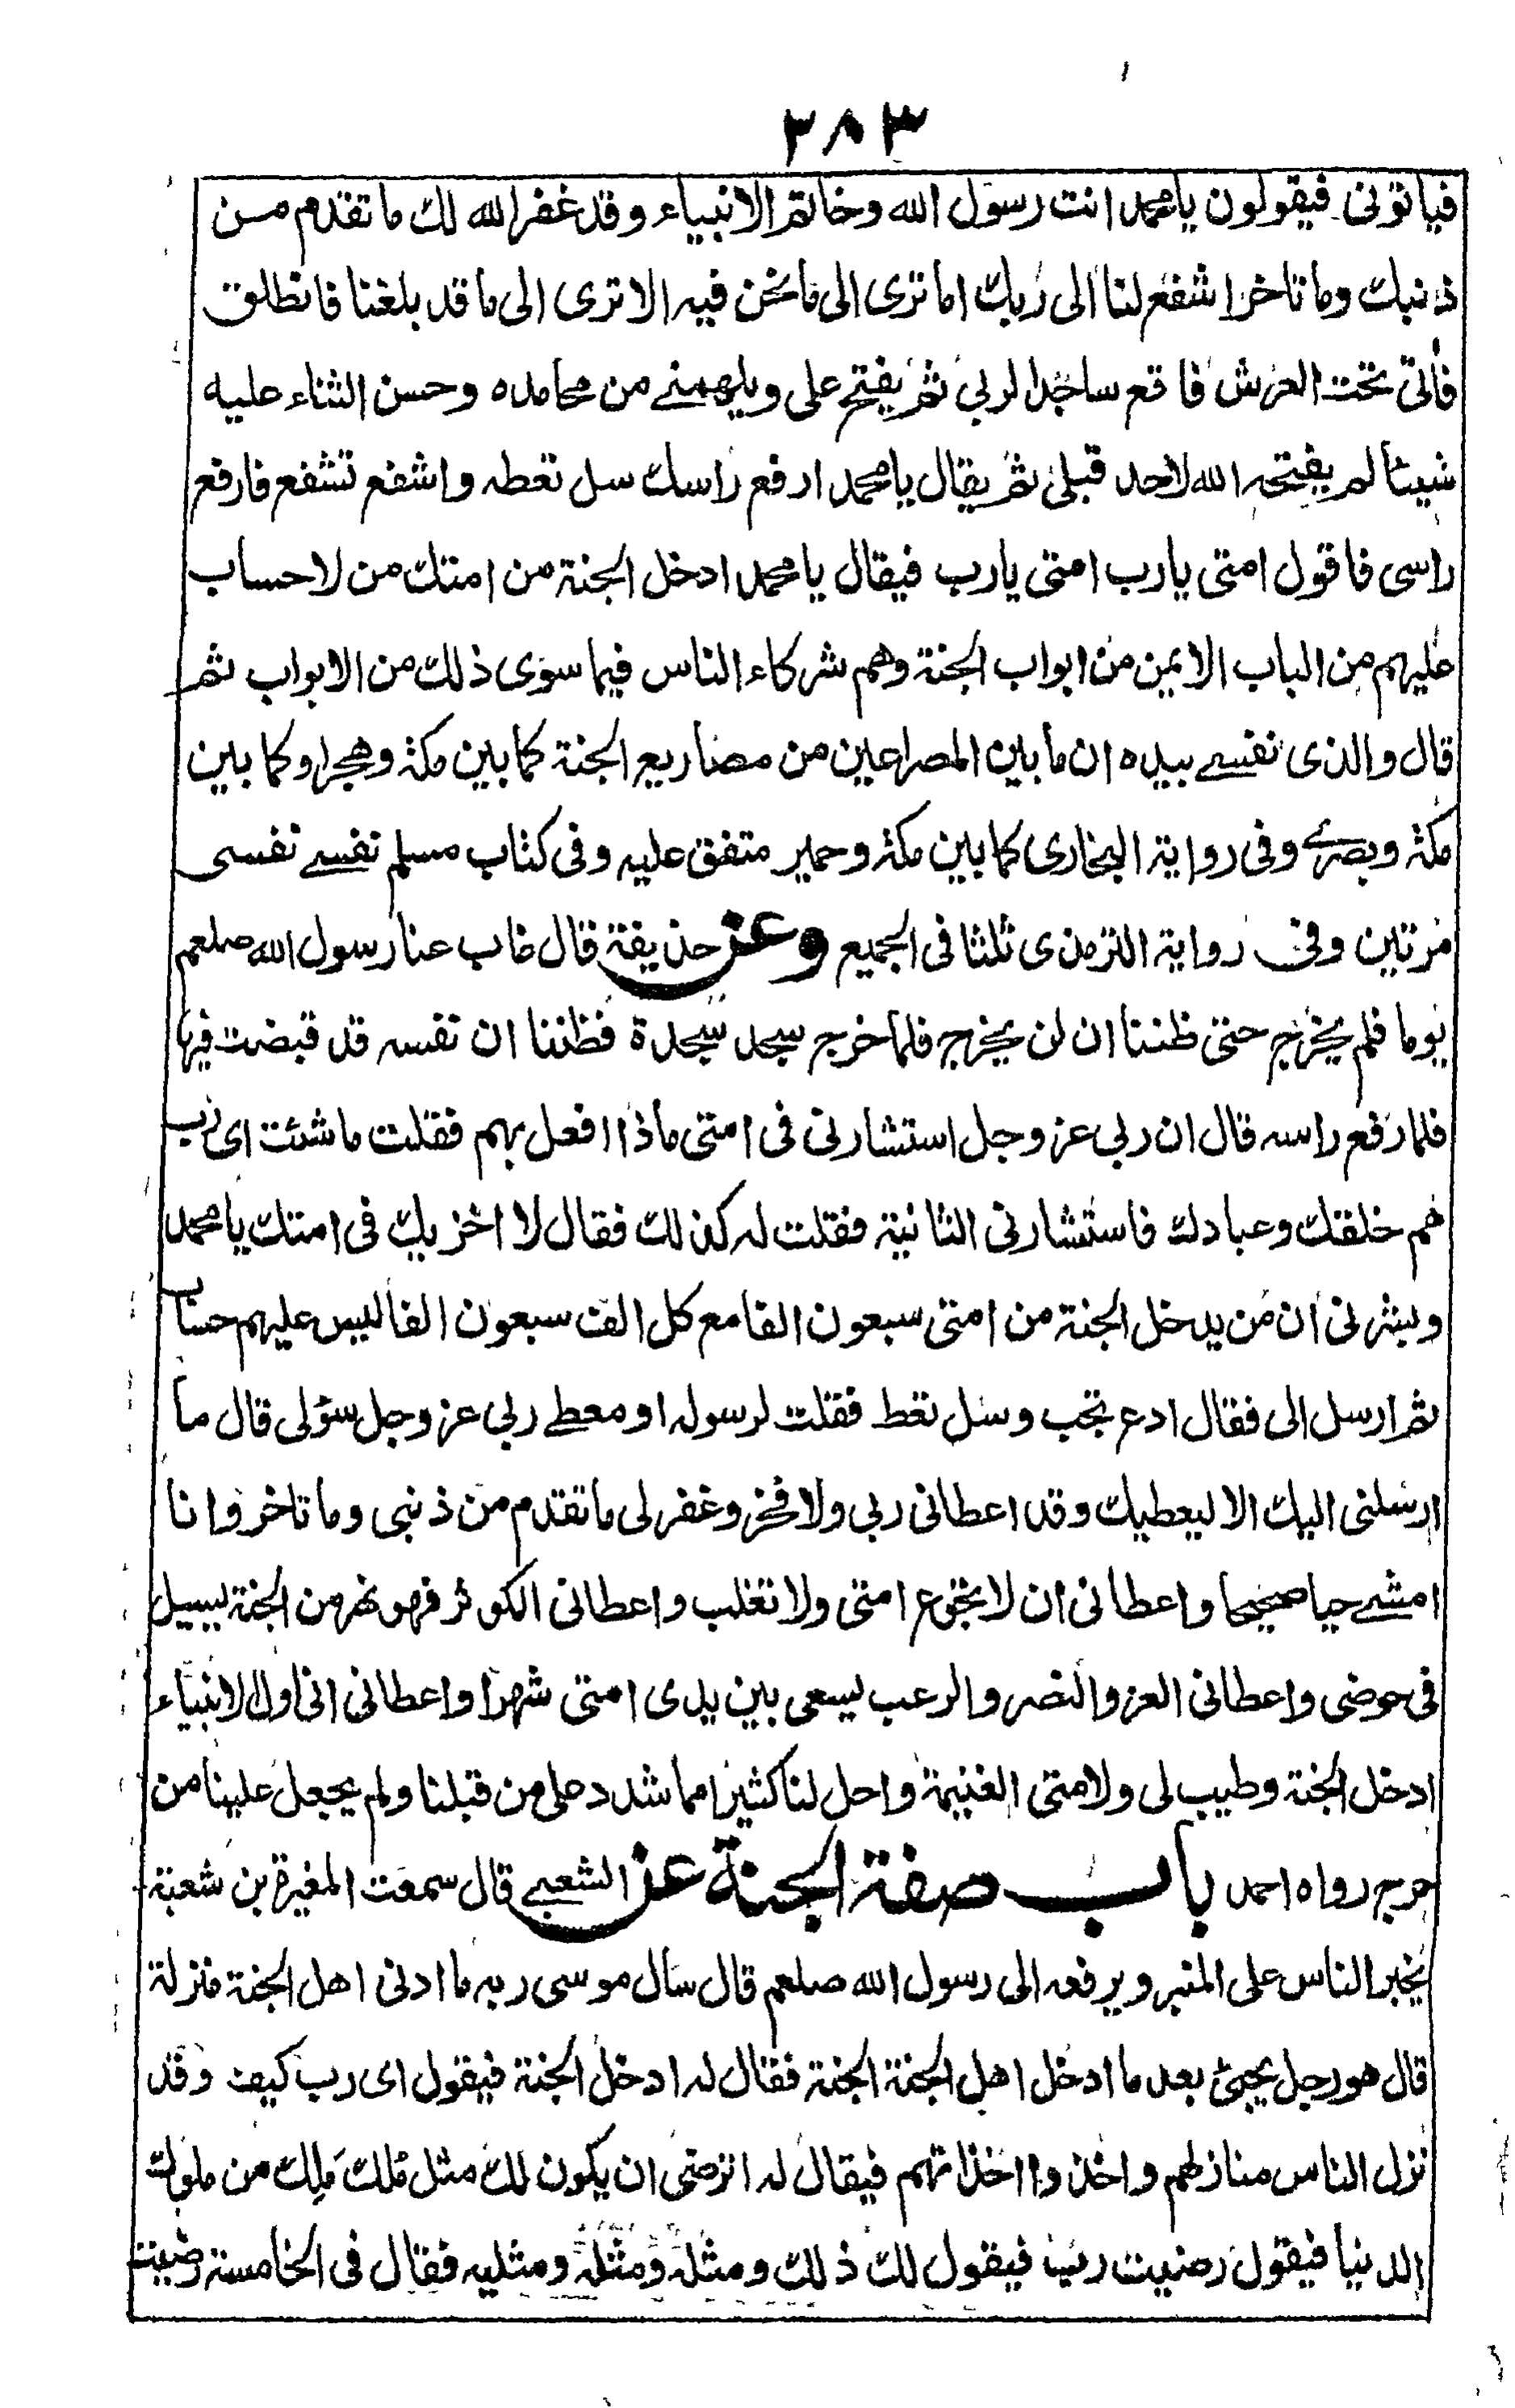 ٣٨٣
فياتونى فيقولون يا محمد انت رسول الله وخاتم الانبياء وقد غفر الله لك ما تقدم من
ذنبك وما تاخر اشفع لنا الى ربك اما ترى الى ما نحن فيه الا ترى الى ما قد بلغنا فانطلق
فأتى تحت العرش فاقع ساجدا لربي ثم يفتح على ويلهمنے من محامده وحسن الثناء عليه
شيئا لم يفتحه الله لاحد قبلى ثم يقال يا محمد ارفع راسك سل تعطه واشفع تشفع فارفع
راسى فاقول امتى يارب امتى يارب فيقال يا محمد ادخل الجنة من امتك من لا حساب
عليهم من الباب الايمن من ابواب الجنة وهم شركاء الناس فيما سوى ذلك من الابواب ثم
قال والذى نفسے بيده ان ما بين المصراعين من مصاريع الجنة كما بين مكة وهجر او كما بين
مكة وبصرے وفى رواية البخارى كما بين مكة وحمير متفق عليه وفى كتاب مسلم نفسے نفسى
مرتين وفى رواية الترمذى ثلثا فى الجميع وعن حذيفة قال غاب عنا رسول الله صلعم
يوما فلم يخرج حتى ظننا ان لن يخرج فلما خرج سجد سجدة فظننا ان نفسه قد قبضت فيها
فلما رفع راسه قال ان ربى عز وجل استشارنى فى امتى ماذا افعل بهم فقلت ما شئت اى رب
هم خلقك وعبادك فاستشارنى الثانية فقلت له كذلك فقال لا اخزيك فى امتك يا محمد
وبشرنى ان من يدخل الجنة من امتى سبعون الفا مع كل الف سبعون الفا ليس عليهم حساب
ثم ارسل الى فقال ادع تجب وسل تعط فقلت لرسوله او معطے ربى عز وجل سؤلى قال ما
ارسلنى اليك الا ليعطيك وقد اعطانى ربى ولا فخر وغفر لى ما تقدم من ذنبى وما تاخر وانا
امشے حيا صحيحا واعطانى ان لا تجوع امتى ولا تغلب واعطانى الكوثر فهو نهر من الجنة يسيل
فى حوضى واعطانى العز والنصر والرعب يسعى بين يدى امتى شهرا واعطانى انى اول الانبياء
ادخل الجنة وطيب لى ولامتى الغنيمة واحل لنا كثيرا مما شدد على من قبلنا ولم يجعل علينا من
حرج رواه احمد باب صفة الجنة عن الشعبے قال سمعت المغيرة بن شعبة
يخبر الناس على المنبر ويرفعه الى رسول الله صلعم قال سأل موسى ربه ما ادنى اهل الجنة منزلة
قال هو رجل يجىئ بعد ما ادخل اهل الجنة الجنة فقال له ادخل الجنة فيقول اى رب كيف وقد
نزل الناس منازلهم واخذوا اخذاتهم فيقال له اترضى ان يكون لك مثل مُلك مَلِك من ملوك
الدنيا فيقول رضيت رب فيقول لك ذلك ومثله ومثله ومثليه فقال فى الخامسة رضيت